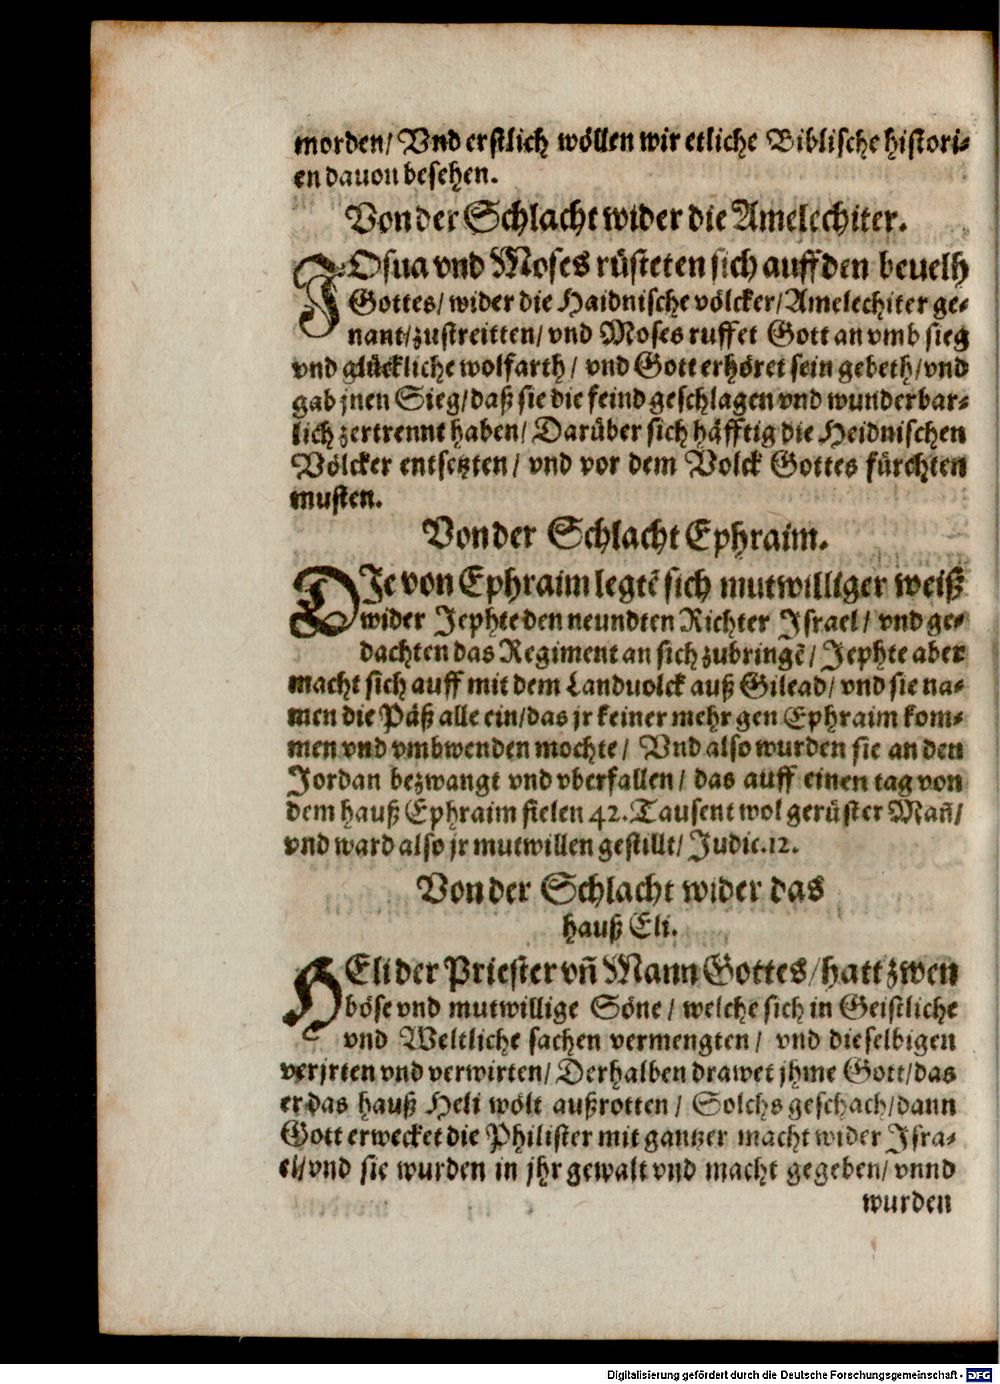 morden/ Vnd erstlich wöllen wir etliche Biblische histori-
en dauon besehen.
Von der Schlacht wider die Amelechiter.
JOsua vnd Moses rüsteten sich auff den beuelh
Gottes/ wider die Haidnische völcker/ Amelechiter ge-
nant/ zustreitten/ vnd Moses ruffet Gott an vmb sieg
vnd glückliche wolfarth/ vnd Gott erhöret sein gebeth/ vnd
gab jnen Sieg/ daß sie die feind geschlagen vnd wunderbar-
lich zertrennt haben/ Darüber sich häfftig die Heidnischen
Völcker entsetzten/ vnd vor dem Volck Gottes fürchten
musten.
Von der Schlacht Ephraim.
DJe von Ephraim legtẽ sich mutwilliger weiß
wider Jephte den neundten Richter Israel/ vnd ge-
dachten das Regiment an sich zubringẽ/ Jephte aber
macht sich auff mit dem Landuolck auß Gilead/ vnd sie na-
men die Päß alle ein/ das jr keiner mehr gen Ephraim kom-
men vnd vmbwenden mochte/ Vnd also wurden sie an den
Jordan bezwangt vnd vberfallen/ das auff einen tag von
dem hauß Ephraim fielen 42. Tausent wol gerüster Mañ/
vnd ward also jr mutwillen gestillt/ Judic. 12.
Von der Schlacht wider das
hauß Eli.
HEli der Priester vñ Mann Gottes/ hatt zwen
böse vnd mutwillige Söne/ welche sich in Geistliche
vnd Weltliche sachen vermengten/ vnd dieselbigen
verjrten vnd verwirten/ Derhalben drawet jhme Gott/ das
er das hauß Heli wölt außrotten/ Solchs geschach/ dann
Gott erwecket die Philister mit gantzer macht wider Jsra-
el/ vnd sie wurden in jhr gewalt vnd macht gegeben/ vnnd
wurden
Digitalisierung gefördert durch die Deutsche Forschungsgemeinschaft - DFG